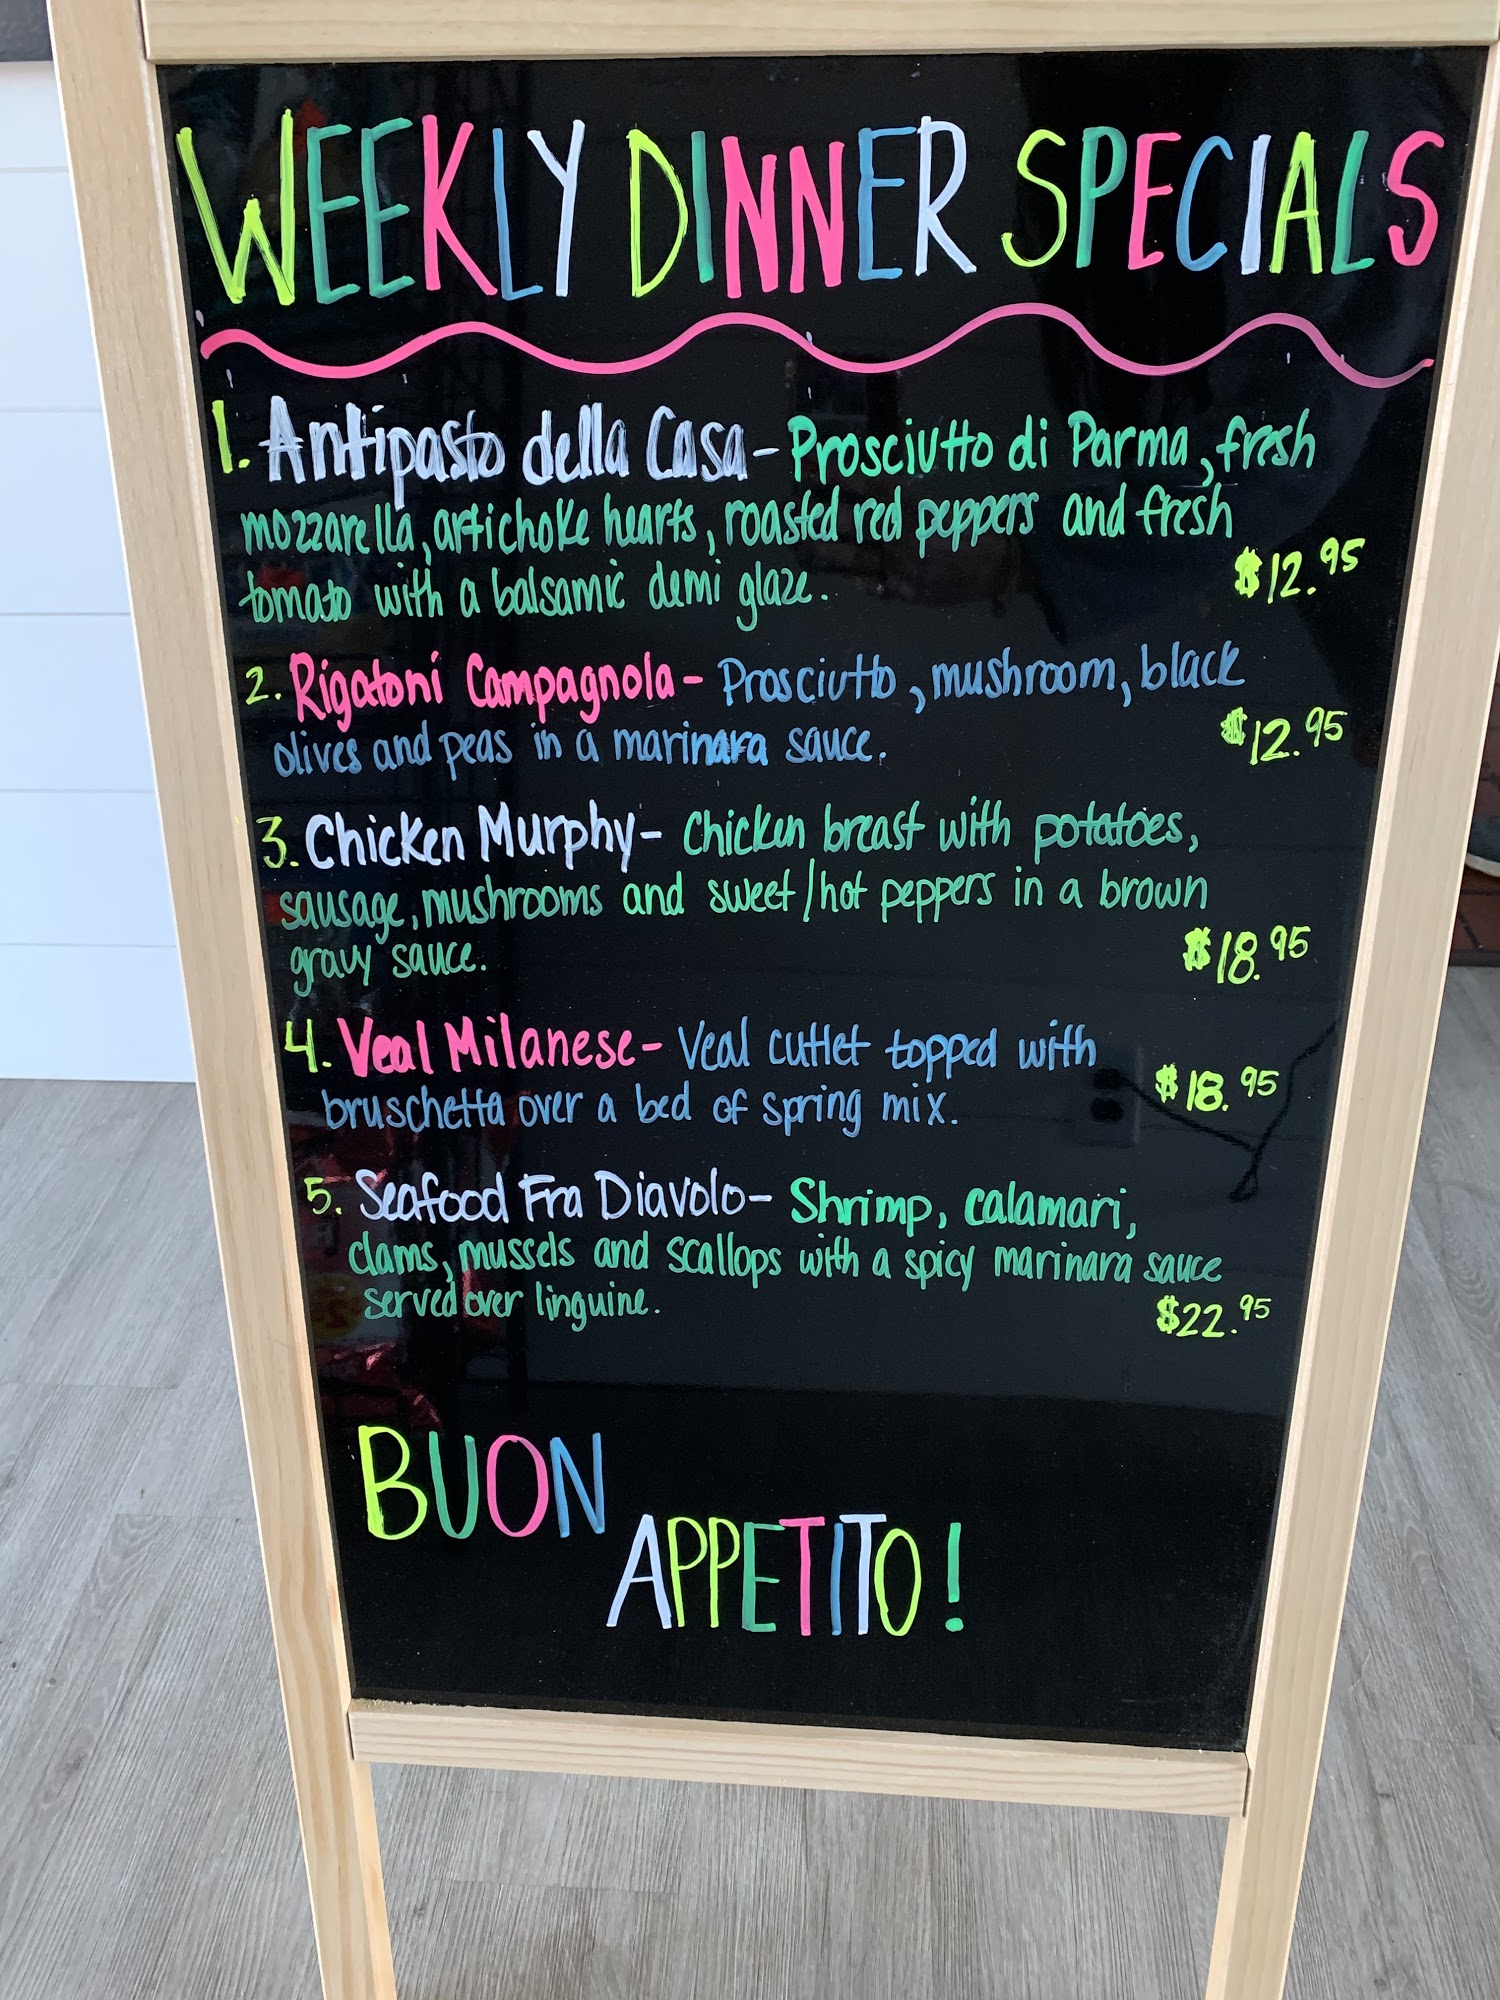 WEEKLY DINNER SPECIALS
1. Antipasto della Casa - Prosciutto di Parma, fresh
mozzarella, artichoke hearts, roasted red peppers and fresh
tomato with a balsamic demi glaze.
$12.95
2. Rigatoni Campagnola - Prosciutto, mushroom, black
olives and peas in a marinara sauce.
$12.95
3. Chicken Murphy - Chicken breast with potatoes,
sausage, mushrooms and sweet/hot peppers in a brown
gravy sauce.
$18.95
4. Veal Milanese - Veal cutlet topped with
bruschetta over a bed of spring mix.
$18.95
5. Seafood Fra Diavolo - Shrimp, calamari,
clams, mussels and scallops with a spicy marinara sauce
served over linguine.
$22.95
BUON
APPETITO!